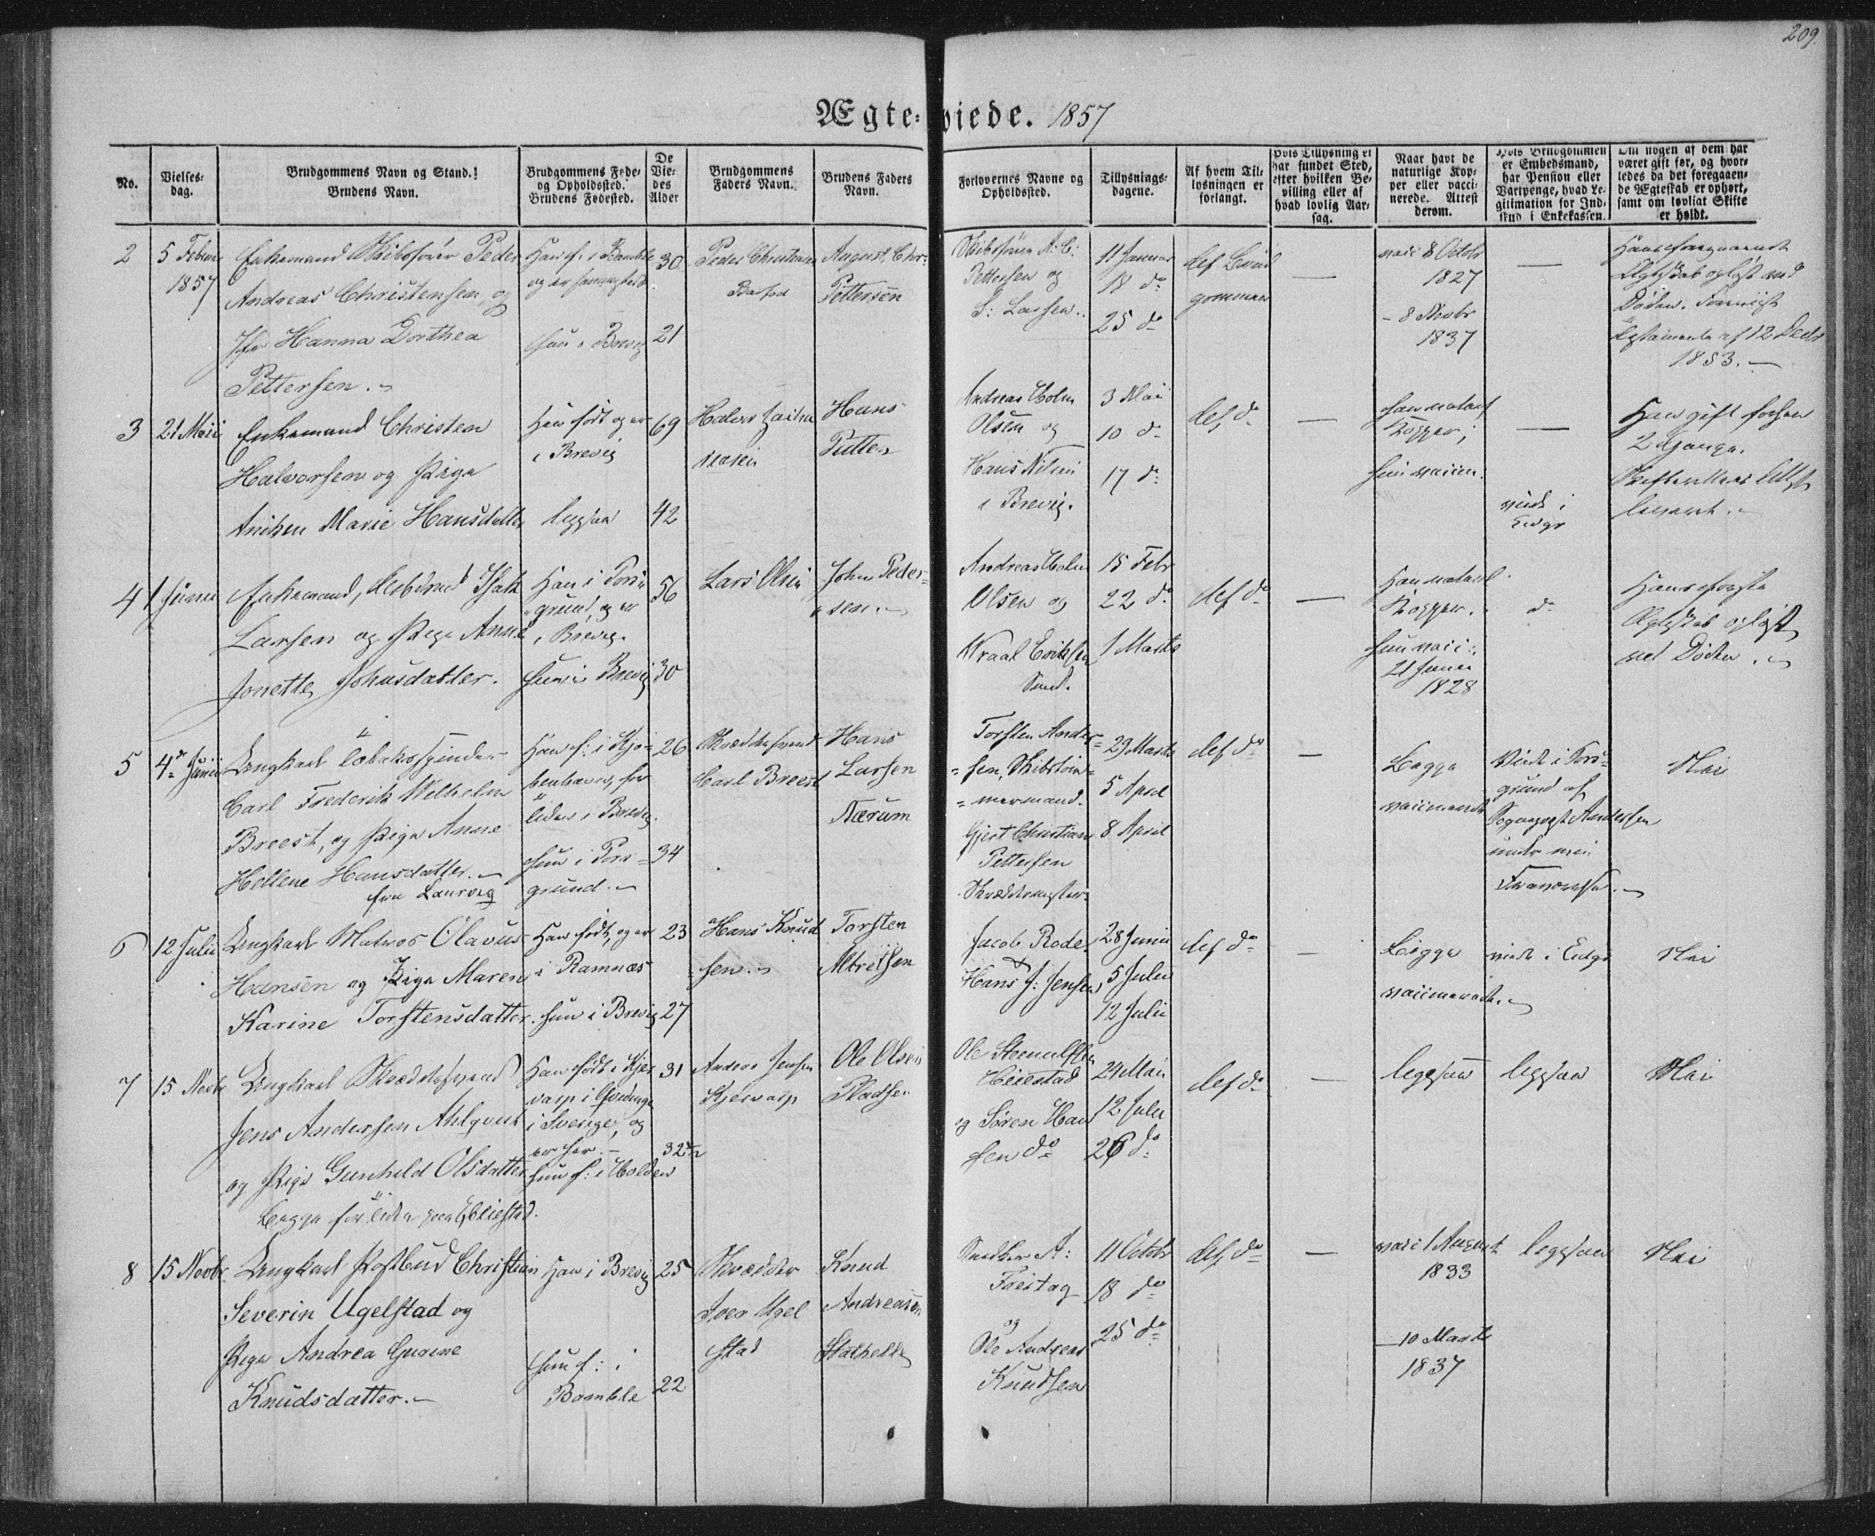 209.
Ægte-viede. 1857
No.
Vielses-
dag.
Brudgommens Navn og Stand.
Brudens Navn.
Brudgommens Føde-
og Opholdssted.
Brudens Fødested.
De
Vie-
des
Alder
Brudgommens
Faders Navn.
Brudens Faders
Navn.
Forlovernes Navne og
Opholdssted.
Tillysnings-
dagene.
Af hvem Til-
lysningen er
forlangt.
Hvis Tillysning ei
har fundet Sted,
efter hvilken Be-
villing eller af
hvad lovlig Aar-
sag.
Naar havt de
naturlige Kop-
per eller vacci-
nerede. Attest
derom.
Hvis Brudgommen
er Embedsmand,
har Pension eller
Vartpenge, hvad Le-
gitimation for Ind-
skud i Enkekassen.
Om nogen af dem har
været gift før, og hvor-
ledes da det foregaaen-
de Ægteskab er ophørt,
samt om lovligt Skifte
er holdt.
2
5 Februar
1857
Enkemand Skibsfører Peder
Andreas Christensen, og
Jfr Hanna Dorthea
Pettersen.
Han f: i Bamble
og er sammesteds
hun i Brevig
30
21
Peder Christensen
August Chr:
Pettersen
Skibsfører A: C:
Pettersen og
S: Larsen.
11 Januar
18 do
25 do
def Brud
gommen
—
vacc 8 Octbr
1827
- 8 Novbr
1837
—
Hans foregaaende
Ægteskab opløst ved
Døden.
Testamente af 12 Decbr
1853.
3
21 Mai
Enkemand Christen
Halvorsen og Pige
Aniken Marie Hansdatter
Han født og er
i Brevig
ligesaa
69
42
Halvor
Hans
Andreas Holm
Olsen og
Hans Nilsen
i Brevig.
3 Mai
10 do
17 do
def do
—
han naturl
Kopper;
hun vaccin.
—
viede i
Eidgr
Han gift forhen
2 Gange.
4
1 Juni
Enkemand, Isak
Larsen og Pige Anne
Jonette Johnsdatter.
Han i Pors-
grund, og er
i Brevig.
hun i Brevig
56
30
Lars Olsen
John Peder-
sen.
Andreas Holm
Olsen og
Eriksen
Sund.
15 Febr
22 do
1 Marts
def do
—
Han naturl.
Kopper.
hun vacc:
21 Juni
1828
do
Hans første
Ægteskab opløst
ved Døden.
5
4de Juni
Ungkarl Tobaksspinder
Carl Frederik Wilhelm
Breest, og Pige Anne
Hellene Hansdatter.
fra Laurvig
Han f: i Kjø-
benhavn, for
tiden i Brevig.
hun i Pors-
grund.
26
34
Skræddersvend
Carl Breest
Hans
Larsen
Nærum
Torsten Ander-
sen, Skibstøm-
mermand.
Gjert Christian
Pettersen
Skræddermester.
29 Marts
5 April
8 April
def do
—
Begge
vaccinerede
Viede i Pors-
grund af
Sognepræst Andersen
under min
Fraværelse.
Nei
6
12 Juli
Ungkarl Matros Olavus
Hansen og Pige Maren
Karine Torstensdatter.
Han født, og er
i Ramnæs
hun i Brevig
23
27
Hans Knud
sen.
Torsten
Jacob Rode.
Hans J: Jensen
28 Juni
5 Juli
12 Juli
def do
—
Begge
vaccinerede.
viede i Eidgr
Nei
7
15 Novbr
Ungkarl Skræddersvend
Jens Andersen Ahlqvist
og Pige Gunhild Olsdatter
Begge for tiden paa
Han født i Kjer
varp i
i Sverige, og
er her.
hun f: i Holden
31
32
Anders Jensen
Kjervarp
Ole Olsen
Ole
og Søren Han
sen do
24 Mai
12 Juli
26 do
def do
—
ligesaa
ligesaa
Nei
8
15 Novbr
Ungkarl Postbud Christian
Severin Ugelstad og
Pige Andrea Gurine
Knudsdatter.
Han i Brevig
hun f: i
Bamble
25
22
Skrædder
Iver Ugel
stad
Knud
Andreassen
Stathelle
Snedker A:
Freitag
og
Ole Andreas
Knudsen
11 Octbr
18 do
25 do
def do
—
vacc 1 August
1833
- 10 Marts
1837
ligesaa
Nei